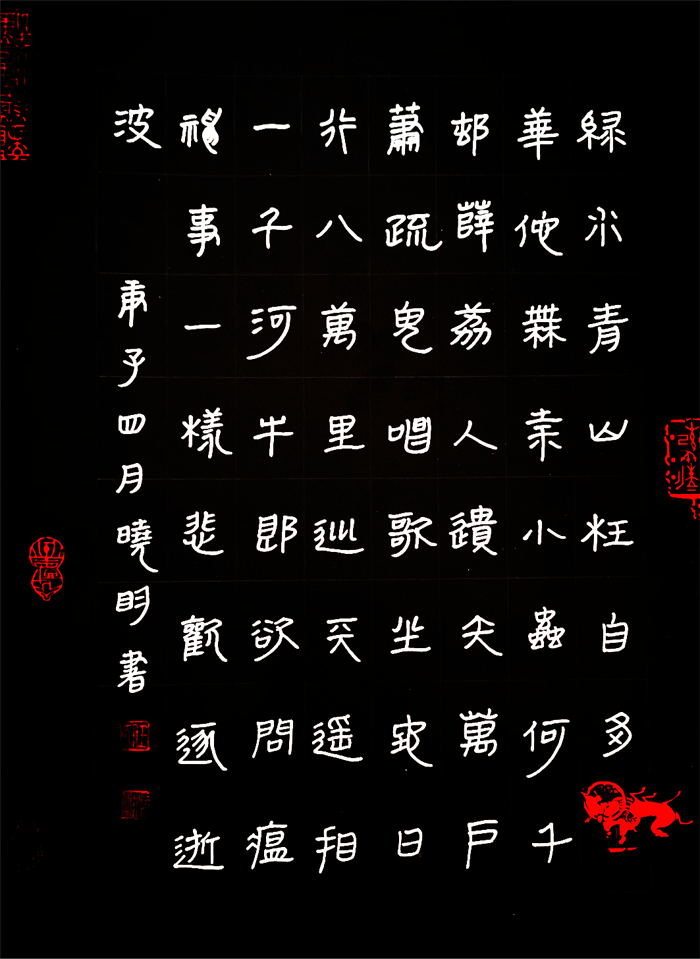 緑水青山枉自多
華佗無奈小蟲何千
邨薜荔人遺矢萬戶
蕭疏鬼唱歌坐地日
行八萬里巡天遥看
一千河牛郎欲問瘟
神事一樣悲歡逐逝
波
庚子四月曉明書